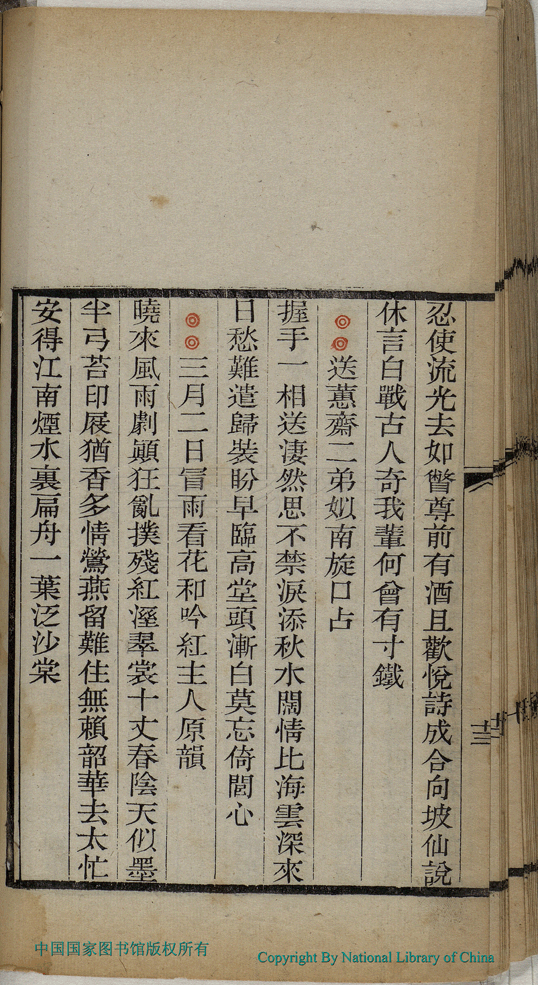 忍使流光去如瞥尊前有酒且歡悅詩成合向坡仙說
休言白戰古人奇我輩何曾有寸鐵
送蕙齋二弟姒南旋口占
握手一相送淒然思不禁淚添秋水闊情比海雲深來
日愁難遣歸裝盼早臨高堂頭漸白莫忘倚閭心
三月二日冒雨看花和吟紅主人原韻
曉來風雨劇顚狂亂撲殘紅溼翠裳十丈春陰天似墨
半弓苔印屐猶香多情鶯燕留難住無賴韶華去太忙
安得江南煙水裏扁舟一葉泛沙棠
十三
中国国家图书馆版权所有
Copyright By National Library of China